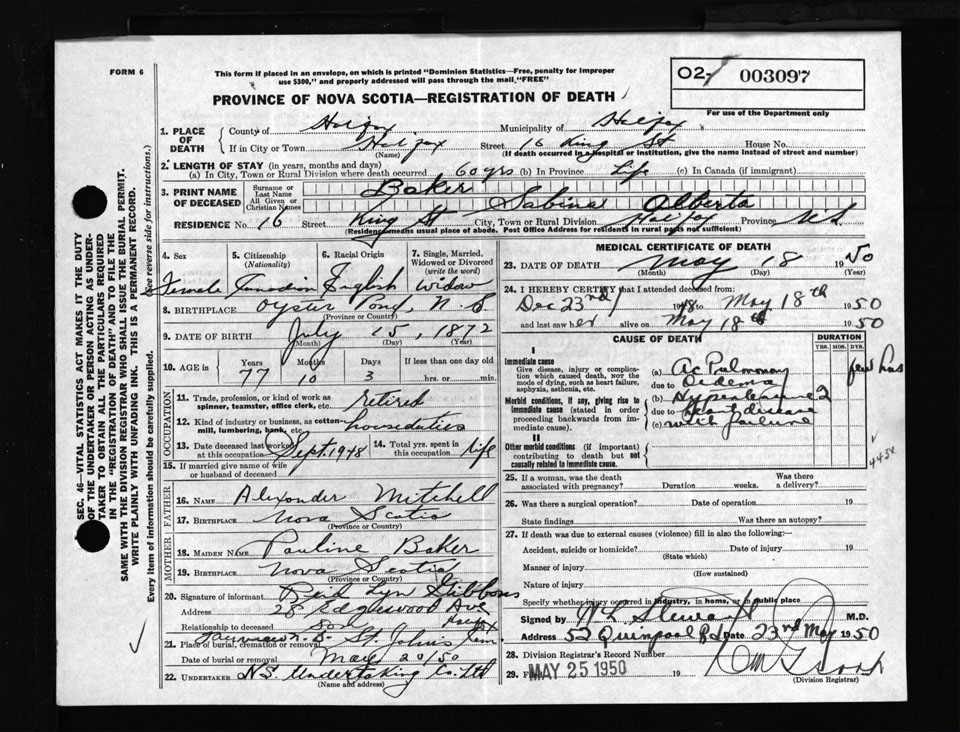 FORM 6
This form if placed in an envelope, on which is printed "Dominion Statistics—Free, penalty for improper
use $300," and properly addressed will pass through the mail, "FREE"
02- 003097
PROVINCE OF NOVA SCOTIA—REGISTRATION OF DEATH
For use of the Department only
1. PLACE OF DEATH
County of Halifax Municipality of Halifax
If in City or Town Halifax Street 16 King St House No.
(Name) (If death occurred in a hospital or institution, give the name instead of street and number)
2. LENGTH OF STAY (in years, months and days)
(a) In City, Town or Rural Division where death occurred 60 yrs (b) In Province Life (c) In Canada (if immigrant)
3. PRINT NAME OF DECEASED
Surname or Last Name Baker
All Given or Christian Names Sabina Alberta
RESIDENCE No. 16 Street King St City, Town or Rural Division Halifax Province N.S.
(Residence means usual place of abode. Post Office Address for residents in rural parts not sufficient)
4. Sex Female
5. Citizenship (Nationality) Canadian
6. Racial Origin English
7. Single, Married, Widowed or Divorced (write the word) Widow
8. BIRTHPLACE Oyster Pond, N.S.
(Province or Country)
9. DATE OF BIRTH July 15, 1872
(Month) (Day) (Year)
10. AGE in
Years Months Days If less than one day old
77 10 3 hrs. or min.
OCCUPATION
11. Trade, profession or kind of work as spinner, teamster, office clerk, etc. retired
12. Kind of industry or business, as cotton-mill, lumbering, bank, etc. houseduties
13. Date deceased last worked at this occupation Sept. 1948
14. Total yrs. spent in this occupation Life
15. If married give name of wife or husband of deceased
FATHER
16. NAME Alexander Mitchell
17. BIRTHPLACE Nova Scotia
(Province or Country)
MOTHER
18. MAIDEN NAME Pauline Baker
19. BIRTHPLACE Nova Scotia
(Province or Country)
20. Signature of informant Gibbons
Address 28 Edgewood Ave Halifax
Relationship to deceased son
21. Place of burial, cremation or removal St. John's Cem.
Date of burial or removal May 20/50
22. UNDERTAKER N.S. Undertaking Co. Ltd
(Name and address)
MEDICAL CERTIFICATE OF DEATH
23. DATE OF DEATH May 18 1950
(Month) (Day) (Year)
24. I HEREBY CERTIFY that I attended deceased from:
Dec 23rd 1948 to May 18th 1950
and last saw her alive on May 18th 1950
CAUSE OF DEATH
DURATION
YRS. MOS. DYS.
I
Immediate cause
Give disease, injury or complication which caused death, not the mode of dying, such as heart failure, asphyxia, asthenia, etc.
(a) Ac Pulmonary
due to Oedema few hrs
Morbid conditions, if any, giving rise to immediate cause (stated in order proceeding backwards from immediate cause).
(b) Hypertensive 2
due to heart disease
(c) with failure
II
Other morbid conditions (if important) contributing to death but not causally related to immediate cause.
25. If a woman, was the death associated with pregnancy? Duration weeks. Was there a delivery?
26. Was there a surgical operation? Date of operation 19
State findings Was there an autopsy?
27. If death was due to external causes (violence) fill in also the following:—
Accident, suicide or homicide? Date of injury 19
(State which)
Manner of injury
(How sustained)
Nature of injury
Specify whether injury occurred in industry, in home, or in public place
Signed by M.D.
Address 52 Quinpool Rd Date 23rd May 1950
28. Division Registrar's Record Number
29. Filed MAY 25 1950 19
(Division Registrar)
SEC. 46—VITAL STATISTICS ACT MAKES IT THE DUTY
OF THE UNDERTAKER OR PERSON ACTING AS UNDER-
TAKER TO OBTAIN ALL THE PARTICULARS REQUIRED
IN THE "REGISTRATION OF DEATH" AND TO FILE THE
SAME WITH THE DIVISION REGISTRAR WHO SHALL ISSUE THE BURIAL PERMIT.
WRITE PLAINLY WITH UNFADING INK. THIS IS A PERMANENT RECORD.
Every item of information should be carefully supplied. (See reverse side for instructions.)